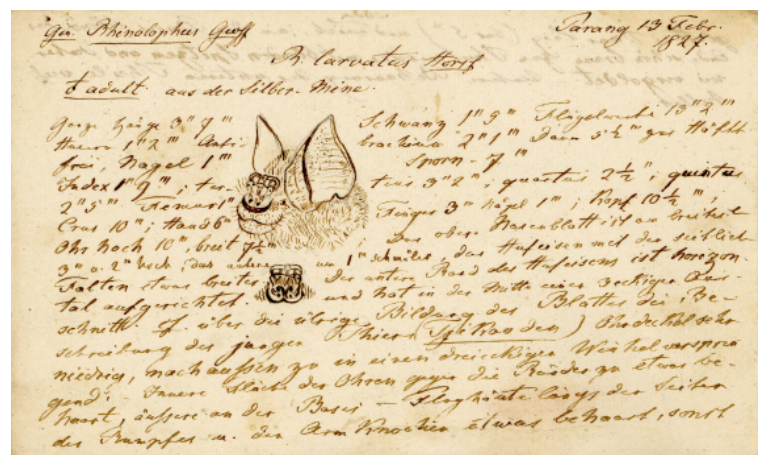 Gen. Rhinolophus Geoff
Parang 13 Febr.
1827.
Rh. larvatus Horsf
♂ adult. aus der Silber-Mine.
Ganze Länge 3" 7'" Schwanz 1" 5" Flügelweite 13" 2'"
Humer 1" 2'" Antibrachium 2" 1'" Daum 5½'" zur Hälfte
frei, Nagel 1'" Sporn - 7'"
Index 1" 9'"; ter- tius 3" 2"; quartus 2½"; quintus
2" 5'" Femur 1" Finger 3'" Nagel 1'"; Kopf 10½'";
Crus 10'"; Hand 6'" Das obere Nasenblatt ist am breitest
Ohr hoch 10'" breit 7½'"
3'" u. 2'" hoch; das andere um 1'" schmäler, das Hufeisen mit den seitlich
Falten etwas breiter. Der untere Rand des Hufeisens ist horizon-
tal aufgerichtet. und hat in der Mitte einen 3eckigen Aus-
schnitt. S. über die übrige Bildung des Blattes die Be-
schreibung des jungen Thiers (Spiritus) Ohrdeckel sehr
niedrig, nach außen zu in einen dreieckigen Winkel vorsprin
gend; - Innere Fläche der Ohren gegen die Ränder zu etwas be-
haart, äussere an der Basis - Flughäute längs der Seiten
des Rumpfes u. der Arm Knochen etwas behaart, sonst